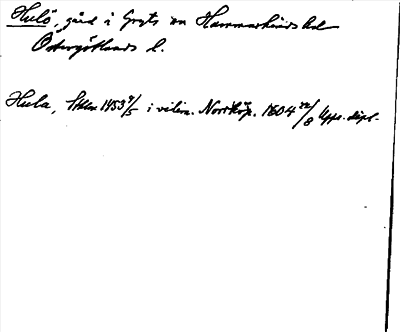 Hulö, gård i Gryts sn Hammarkinds hd
Östergötlands l.
Hula, Sthlm 1453 9/5 i vidim. Norrköp. 1604 22/8 Upps. dipl.